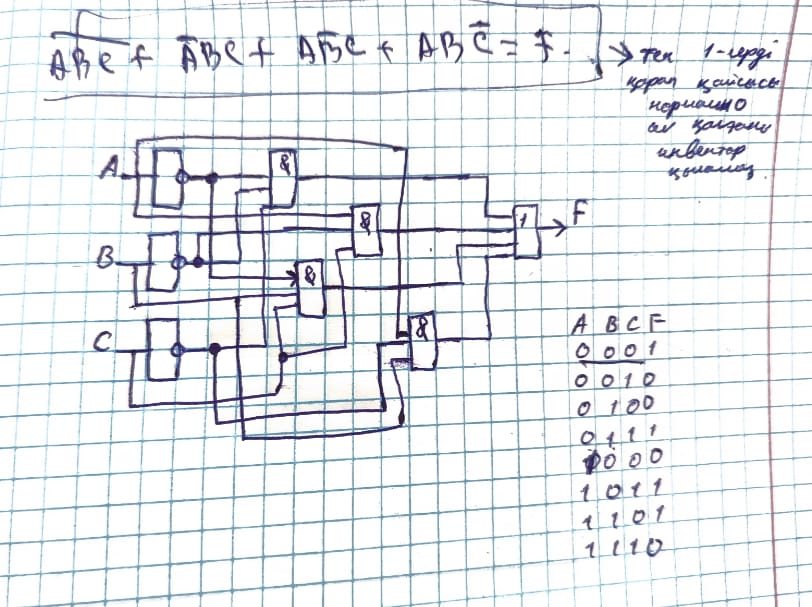 A̅B̅C̅ + A̅BC + AB̅C + ABC̅ = F.
→ тек 1-лерді
қарап қайсысы
нормально
ол қалғаны
инвентор
қыламыз.
A
&
&
1
F
B
&
C
&
A B C F
0 0 0 1
0 0 1 0
0 1 0 0
0 1 1 1
1 0 0 0
1 0 1 1
1 1 0 1
1 1 1 0